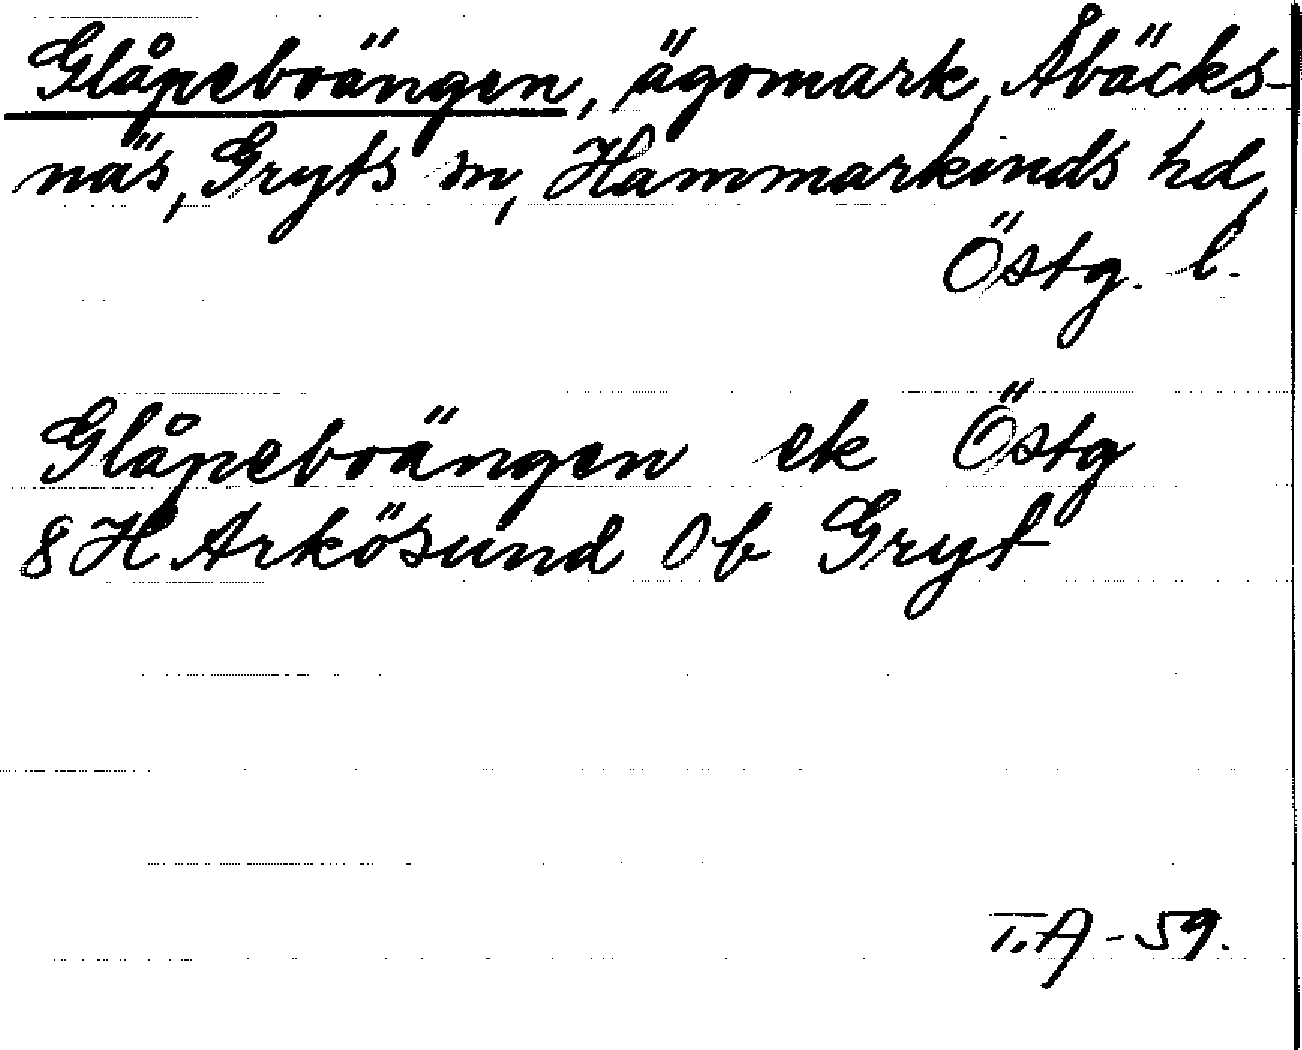 Glåpeboängen, ägomark, Åbäcks-
näs, Gryts sn, Hammarkinds hd,
Östg. l.
Glåpeboängen ek Östg
8H Arkösund 0b Gryt
T.A-59.